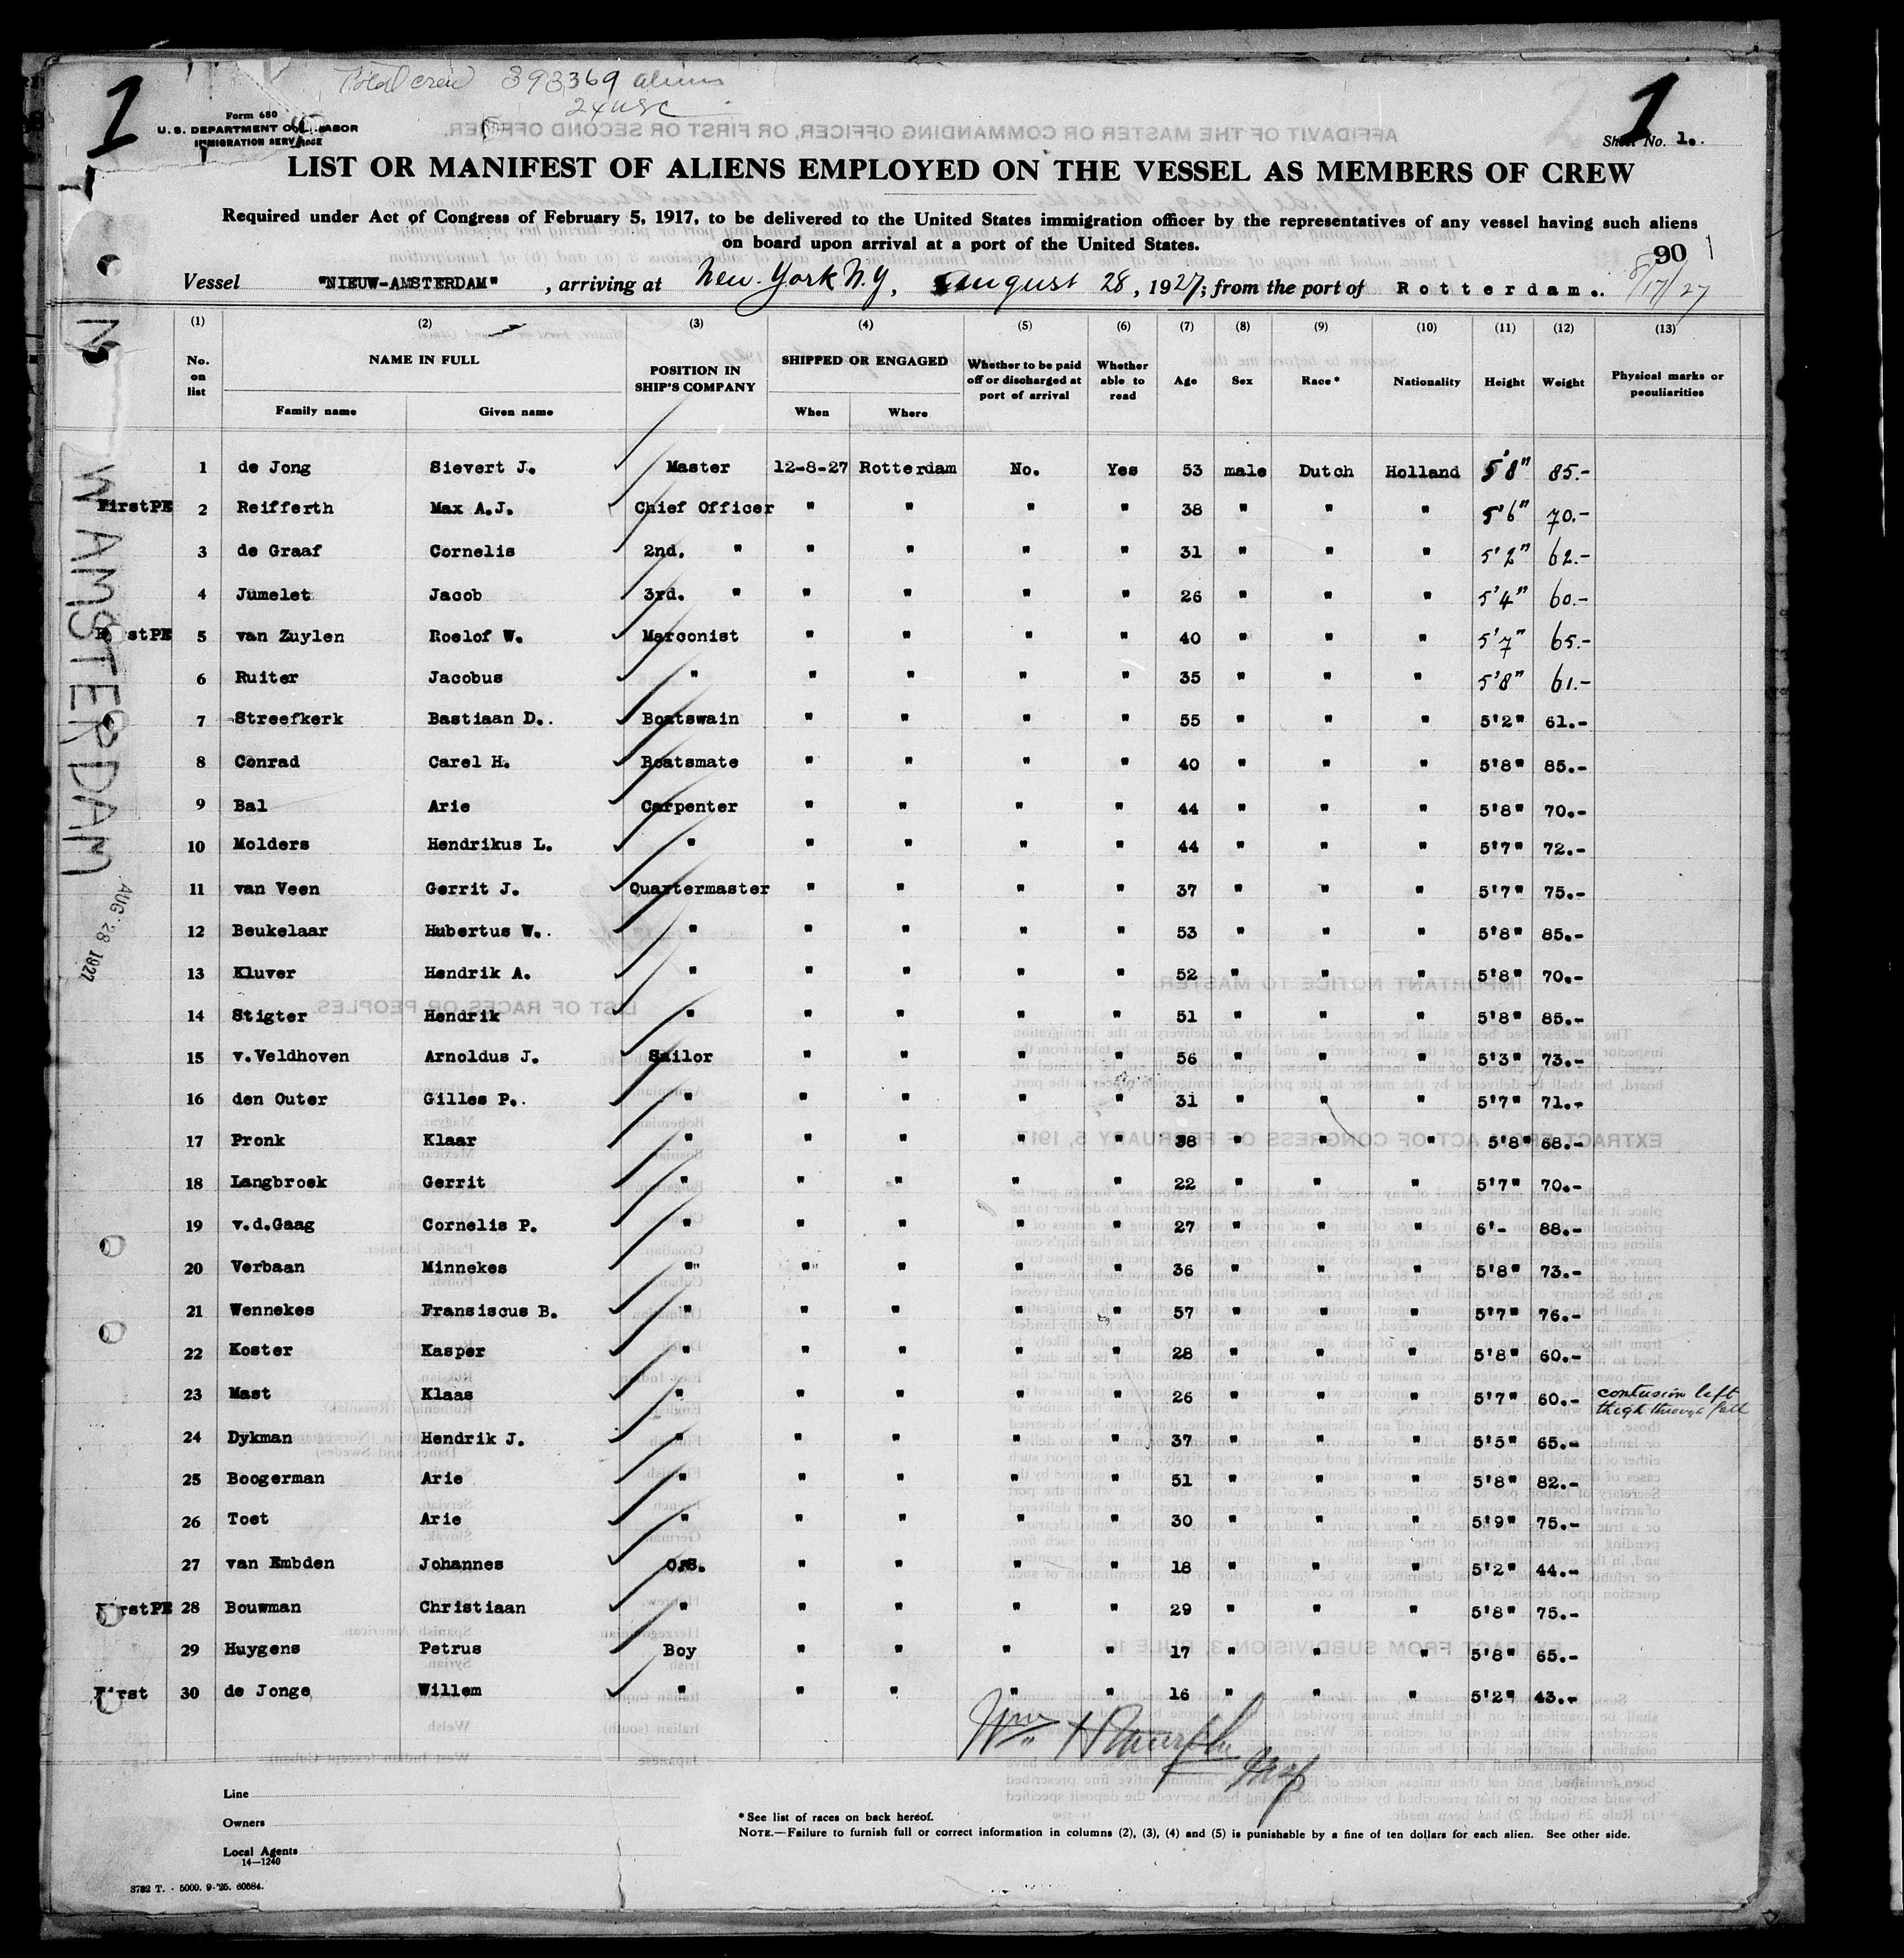 1
Total crew 393 369 aliens
24 USC
1
Form 680
U.S. DEPARTMENT OF LABOR
IMMIGRATION SERVICE
Sheet No. 1.
LIST OR MANIFEST OF ALIENS EMPLOYED ON THE VESSEL AS MEMBERS OF CREW
Required under Act of Congress of February 5, 1917, to be delivered to the United States immigration officer by the representatives of any vessel having such aliens
on board upon arrival at a port of the United States.
90
Vessel "NIEUW-AMSTERDAM" , arriving at New York N.Y, August 28, 1927; from the port of Rotterdam.. 8/17/27
(1) (2) (3) (4) (5) (6) (7) (8) (9) (10) (11) (12) (13)
No. on list NAME IN FULL Family name Given name POSITION IN SHIP'S COMPANY SHIPPED OR ENGAGED When Where Whether to be paid off or discharged at port of arrival Whether able to read Age Sex Race* Nationality Height Weight Physical marks or peculiarities
1 de Jong Sievert J. Master 12-8-27 Rotterdam No. Yes 53 male Dutch Holland 5'8" 85.-
FirstPE 2 Reifferth Max A.J. Chief Officer " " " " 38 " " " 5'6" 70.-
3 de Graaf Cornelis 2nd. " " " " " 31 " " " 5'2" 62.-
4 Jumelet Jacob 3rd. " " " " " 26 " " " 5'4" 60.-
FirstPE 5 van Zuylen Roelof W. Marconist " " " " 40 " " " 5'7" 65.-
6 Ruiter Jacobus " " " " " 35 " " " 5'8" 61.-
7 Streefkerk Bastiaan D.. Boatswain " " " " 55 " " " 5'2" 61.-
8 Conrad Carel H. Boatsmate " " " " 40 " " " 5'8" 85.-
9 Bal Arie Carpenter " " " " 44 " " " 5'8" 70.-
10 Molders Hendrikus L. " " " " " 44 " " " 5'7" 72.-
11 van Veen Gerrit J. Quartermaster " " " " 37 " " " 5'7" 75.-
12 Beukelaar Hubertus W.. " " " " " 53 " " " 5'8" 85.-
13 Kluver Hendrik A. " " " " " 52 " " " 5'8" 70.-
14 Stigter Hendrik " " " " " 51 " " " 5'8" 85.-
15 v.Veldhoven Arnoldus J. Sailor " " " " 56 " " " 5'3" 73.-
16 den Outer Gilles P.. " " " " " 31 " " " 5'7" 71.-
17 Pronk Klaar " " " " " 38 " " " 5'8" 68.-
18 Langbroek Gerrit " " " " " 22 " " " 5'7" 70.-
19 v.d.Gaag Cornelis P. " " " " " 27 " " " 6'- 88.-
20 Verbaan Minnekes " " " " " 36 " " " 5'8" 73.-
21 Wennekes Fransiscus B. " " " " " 57 " " " 5'7" 76.-
22 Koster Kasper " " " " " 28 " " " 5'8" 60.-
23 Mast Klaas " " " " " 26 " " " 5'7" 60.- contusion left thigh through fall
24 Dykman Hendrik J. " " " " " 37 " " " 5'5" 65.-
25 Boogerman Arie " " " " " 51 " " " 5'8" 82.-
26 Toet Arie " " " " " 30 " " " 5'9" 75.-
27 van Embden Johannes O.S. " " " " 18 " " " 5'2" 44.-
FirstPE 28 Bouwman Christiaan " " " " " 29 " " " 5'8" 75.-
29 Huygens Petrus Boy " " " " 17 " " " 5'8" 65.-
First 30 de Jonge Willem " " " " " 16 " " " 5'2" 43.-
N W AMSTERDAM
AUG 28 1927
Line
Owners
Local Agents
14—1240
* See list of races on back hereof.
NOTE.—Failure to furnish full or correct information in columns (2), (3), (4) and (5) is punishable by a fine of ten dollars for each alien. See other side.
3782 T. - 5000. 9-'25. 60584.